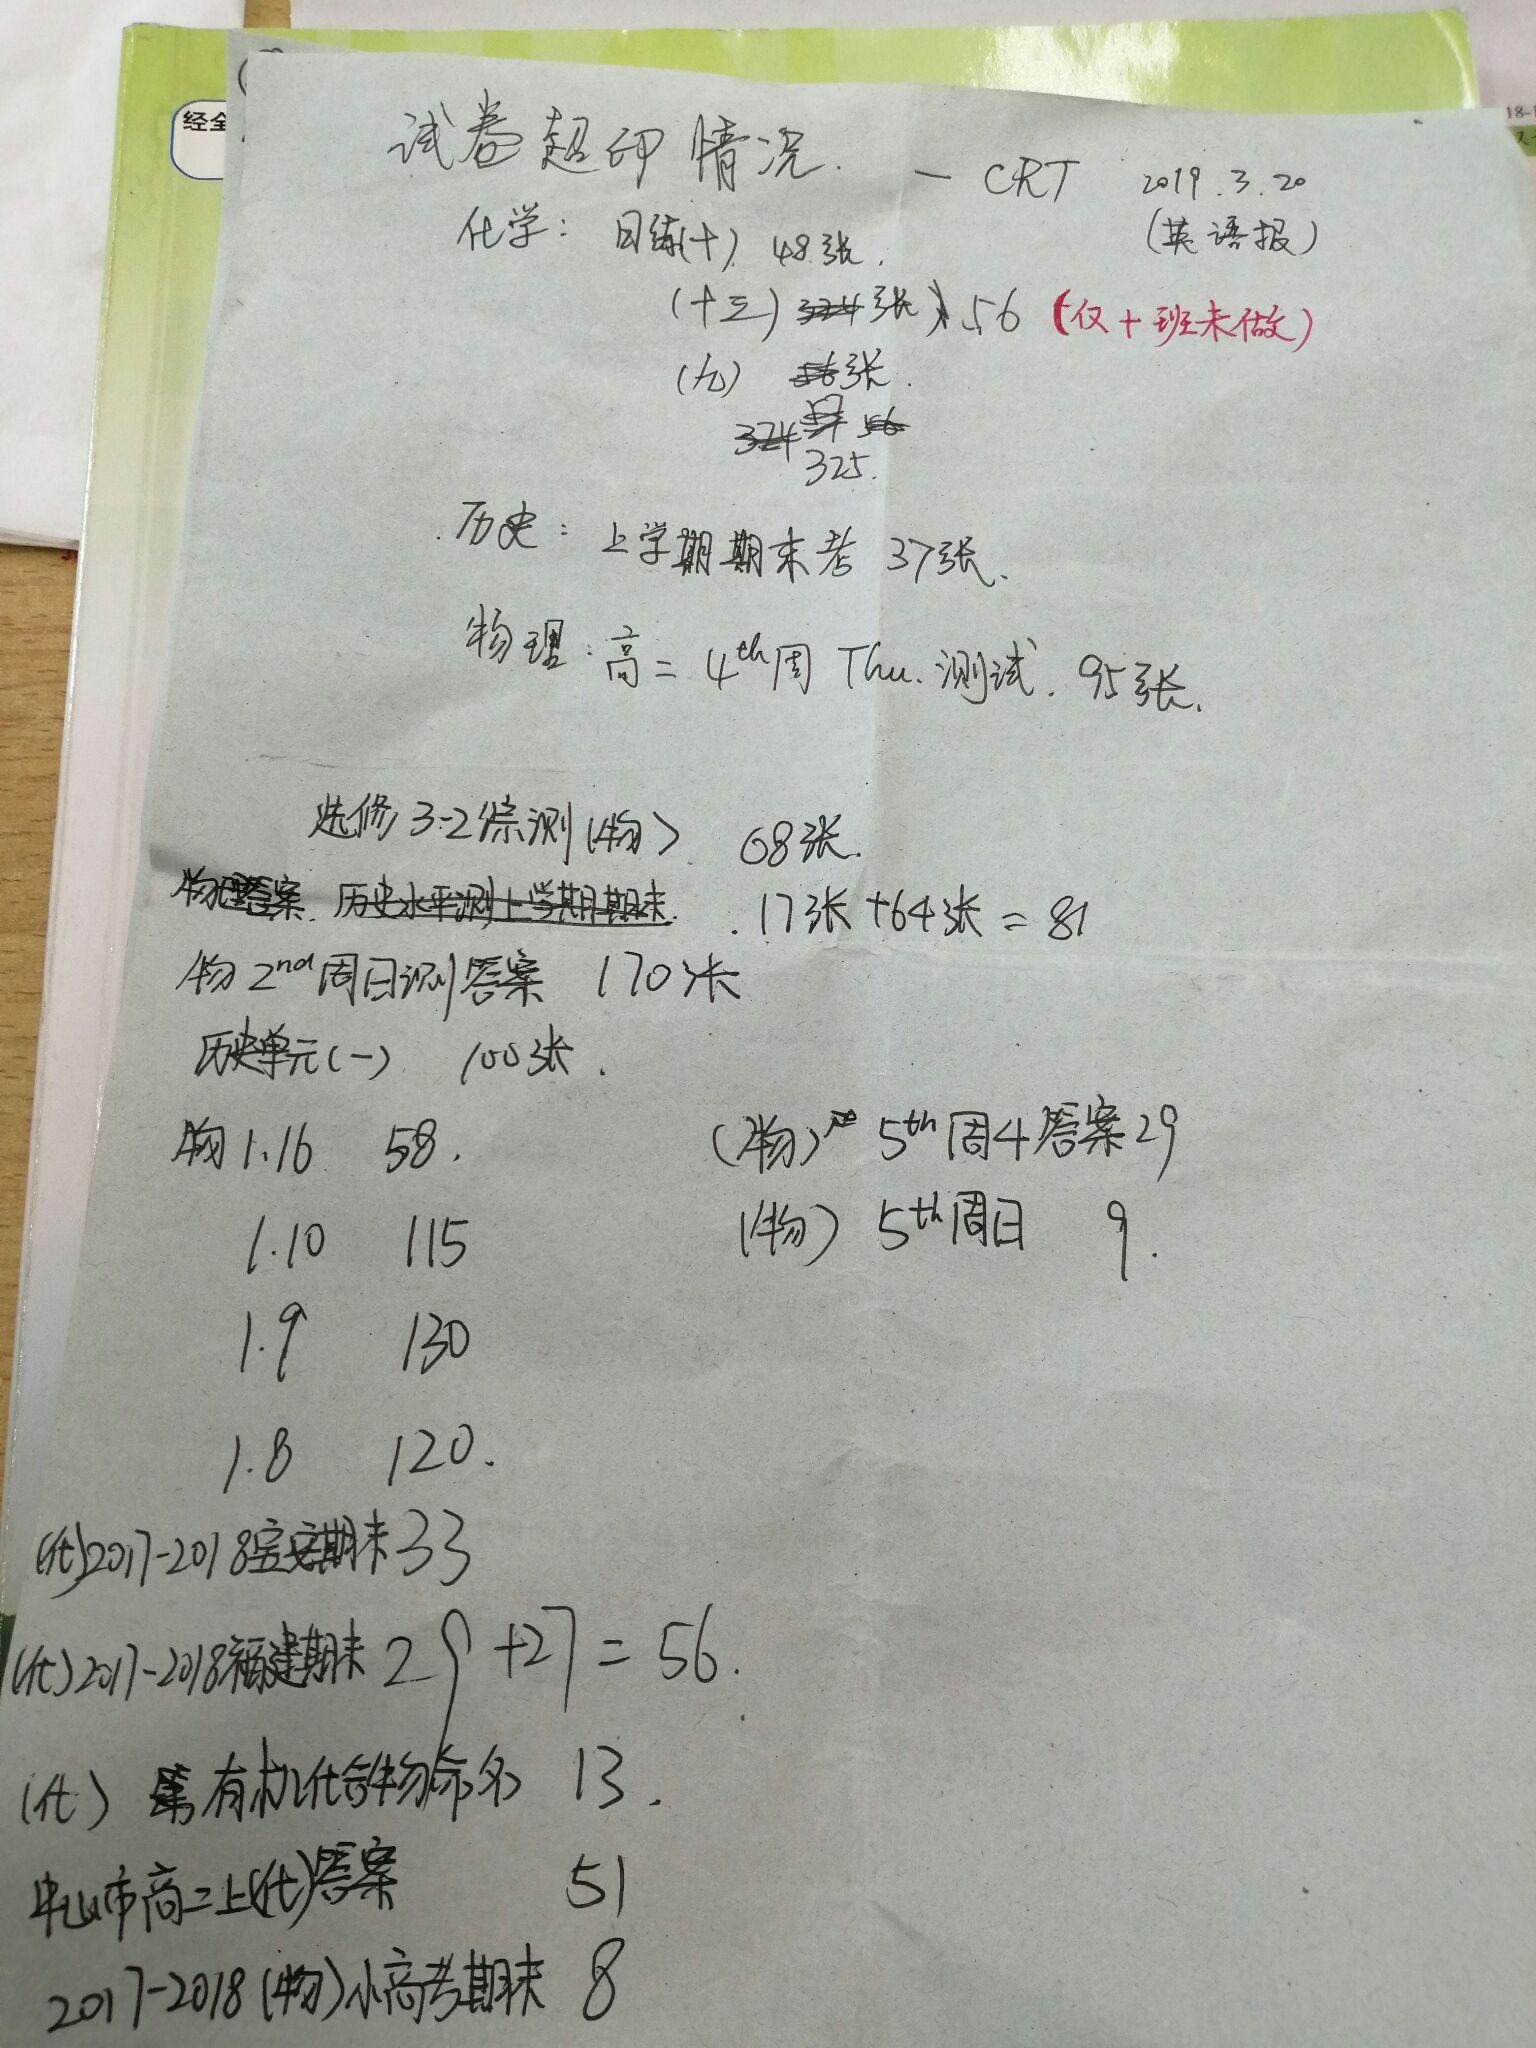 经全
18-1
试卷超印情况. — CRT 2019.3.20
(英语报)
化学: 日练(十) 48张.
(十三) 324张 56 (仅十班未做)
(九) 56张.
324 56
325.
历史: 上学期期末考 37张.
物理: 高二 4th周 Thu. 测试. 95张.
选修3-2综测(物) 68张.
物理答案. 历史水平测上学期期末. 17张+64张=81
物2nd周日测答案 170张
历史单元(一) 100张.
物1.16 58.
(物) 5th周4答案29
1.10 115
(物) 5th周日 9.
1.9 130
1.8 120.
(化)2017-2018宝安期末33
(化)2017-2018福建期末29+27=56.
(化) 有机化合物命名 13.
中山市高二上(化)答案 51
2017-2018(物)小高考期末 8